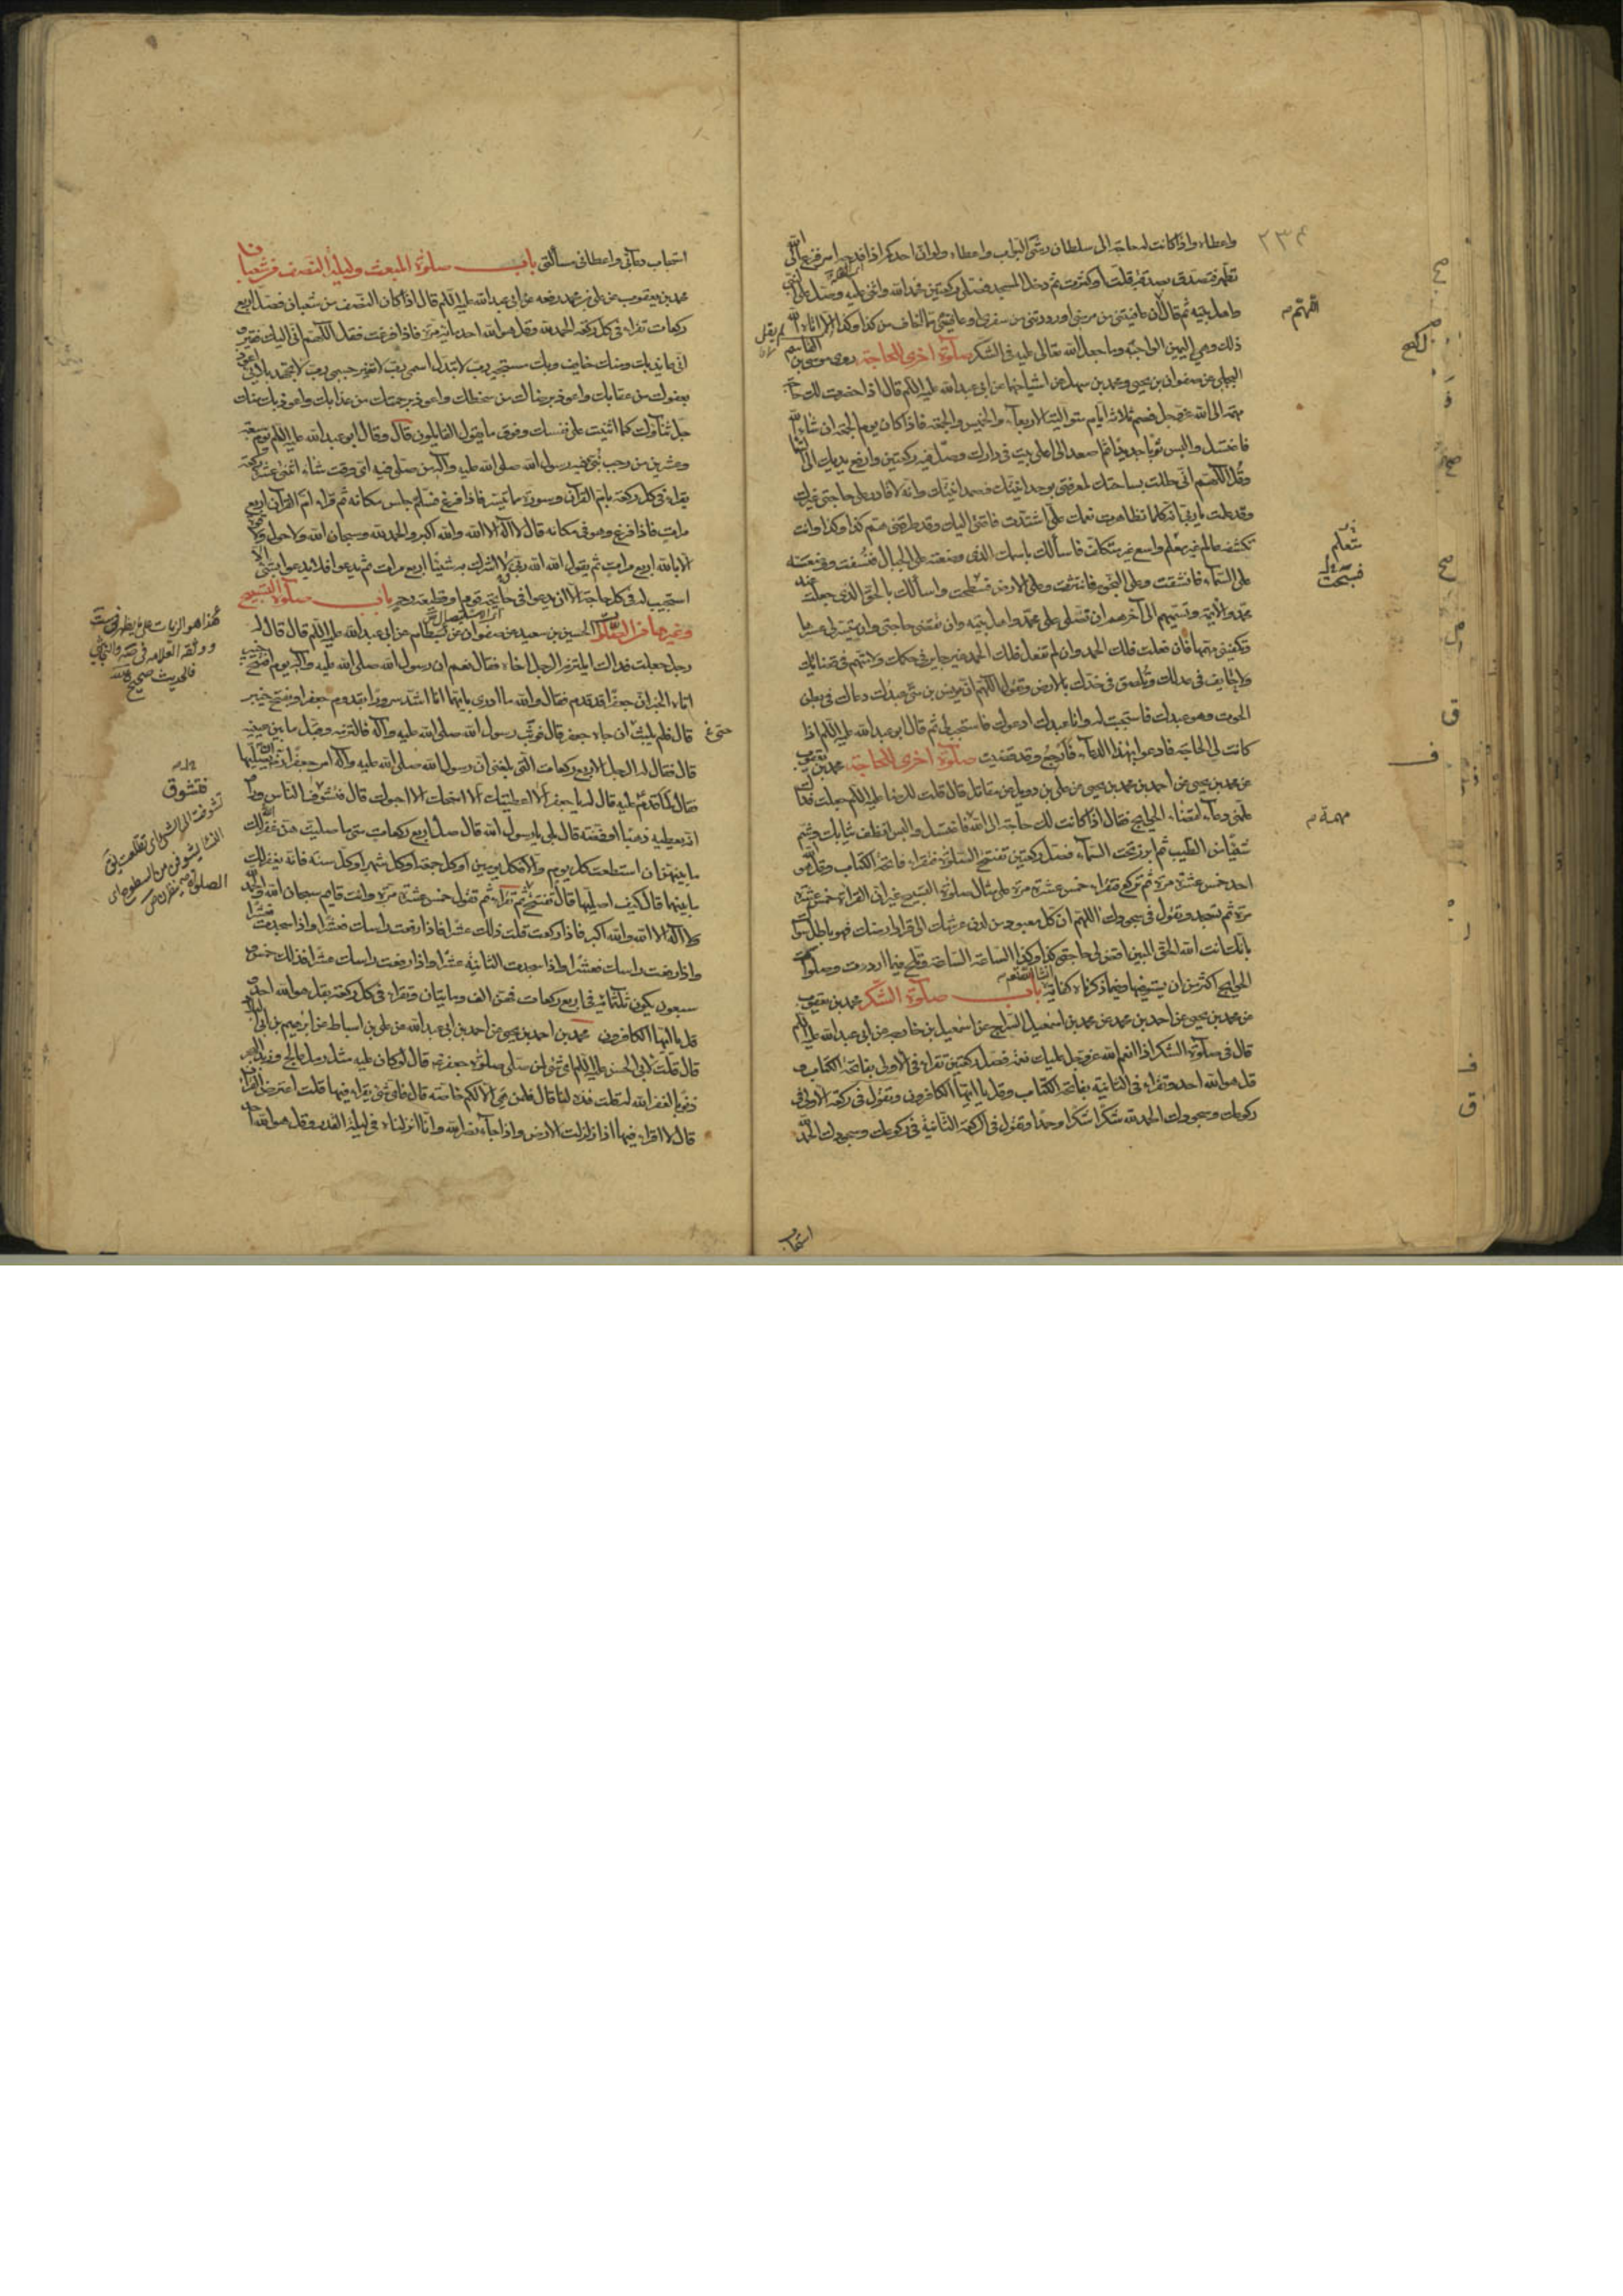 ٢٣٤
واعطاه واذا كانت له حاجة الى سلطان رشى البواب واعطاه ولو ان احدكم اذا فدحه امر فزع الى الله
تعالى فتطهر وتصدق بصدقة قلت او كثرت ثم دخل المسجد فصلى ركعتين فحمد الله واثنى عليه وصلى على النبي
واهل بيته ثم قال اللهم ان عافيتنى من مرضى او رددتنى من سفرى او عافيتنى مما اخاف من كذا وكذا الا اتاه الله
ذلك وهي اليمين الواجبة وما جعل الله تعالى عليه فى الشكر صلوة اخرى للحاجة روى موسى بن القاسم
البجلى عن صفوان بن يحيى ومحمد بن سهل عن اشياخهما عن ابى عبد الله عليه السلم قال اذا حضرت لك حاجة
مهمة الى الله عز وجل فصم ثلاثة ايام متوالية الاربعاء والخميس والجمعة فاذا كان يوم الجمعة ان شاء الله
فاغتسل والبس ثوبا جديدا ثم اصعد الى اعلى بيت فى دارك وصل فيه ركعتين وارفع يديك الى السماء
وقل اللهم انى حللت بساحتك لمعرفتى بوحدانيتك وصمدانيتك وانه لا قادر على حاجتى غيرك
وقد علمت يا رب انه كلما تظاهرت نعمك على اشتدت فاقتى اليك وقد طرقنى هم كذا وكذا وانت
تكشفه عالم غير معلم واسع غير متكلف فاسألك باسمك الذى وضعته على الجبال فنسفت ووضعته
على السماء فانشقت وعلى النجوم فانتثرت وعلى الارض فسطحت واسألك بالحق الذى جعلته عند
محمد والائمة وتسميهم الى آخرهم ان تصلى على محمد واهل بيته وان تقضى حاجتى وان تيسر لى عسيرها
وتكفينى مهمها فان فعلت فلك الحمد وان لم تفعل فلك الحمد غير جاير فى حكمك ولا متهم فى قضائك
ولا حايف فى عدلك وتلصق خدك بالارض وتقول اللهم ان يونس بن متى عبدك دعاك فى بطن
الحوت وهو عبدك فاستجبت له وانا عبدك ادعوك فاستجب لى ثم قال ابو عبد الله عليه السلم اذا
كانت لى الحاجة فادعوا بهذا الدعاء فارجع وقد قضيت صلوة اخرى للحاجة محمد بن يعقوب
عن محمد بن يحيى عن احمد بن محمد بن عيسى عن على بن دويل عن مقاتل قال قلت للرضا عليه السلم جعلت فداك
علمنى دعاء لقضاء الحوايج فقال اذا كانت لك حاجة الى الله فاغتسل والبس انظف ثيابك وشم
شيئا من الطيب ثم ابرز تحت السماء فصل ركعتين تفتتح الصلوة فتقراء فاتحة الكتاب وقل هو الله
احد خمس عشرة مرة ثم تركع فتقراء خمس عشرة مرة على مثال صلوة التسبيح غير ان القراءة خمس عشرة
مرة ثم تسجد وتقول فى سجودك اللهم ان كل معبود من لدن عرشك الى قرار ارضك فهو باطل سواك
بانك انت الله الحق المبين اقض لى حاجتى كذا وكذا الساعة الساعة وتلح فيما اردت وصلوات
الحوايج اكثر من ان يستوفيها وفيما ذكرناه كفاية باب صلوة الشكر محمد بن يعقوب
عن محمد بن يحيى عن احمد بن محمد عن محمد بن اسمعيل السراج عن اسمعيل بن خارجه عن ابى عبد الله عليه السلم
قال فى صلوة الشكر اذا انعم الله عز وجل عليك نعمة فصل ركعتين تقراء فى الاولى بفاتحة الكتاب و
قل هو الله احد وتقراء فى الثانية بفاتحة الكتاب وقل يا ايها الكافرون وتقول فى ركعة الاولى فى
ركوعك وسجودك الحمد لله شكرا شكرا وحمدا وتقول فى الركعة الثانية فى ركوعك وسجودك الحمد لله
اللهم م
لم يقل
مهمة م
استجاب
استجاب دعائى واعطانى مسألتى باب صلوة المبعث وليلة النصف من شعبان
محمد بن يعقوب عن على بن محمد رفعه عن ابى عبد الله عليه السلم قال اذا كان النصف من شعبان فصل اربع
ركعات تقراء فى كل ركعة الحمد مرة وقل هو الله احد مائة مرة فاذا فرغت فقل اللهم انى اليك فقير و
انى عايذ بك ومنك خايف وبك مستجير رب لا تبدل اسمى رب لا تغير جسمى رب لا تجهد بلائى اعوذ
بعفوك من عقابك واعوذ برضاك من سخطك واعوذ برحمتك من عذابك واعوذ بك منك
جل ثناؤك كما اثنيت على نفسك وفوق ما يقول القايلون قال وقال ابو عبد الله عليه السلم يوم سبعة
وعشرين من رجب نبئ فيه رسول الله صلى الله عليه وآله من صلى فيه اى وقت شاء اثنتى عشرة ركعة
يقراء فى كل ركعة بام القرآن وسورة ما تيسر فاذا فرغ وسلم جلس مكانه ثم قراء ام القرآن اربع
مرات فاذا فرغ وهو فى مكانه قال لا اله الا الله والله اكبر والحمد لله وسبحان الله ولا حول ولا قوة
الا بالله اربع مرات ثم يقول الله الله ربى لا اشرك به شيئا اربع مرات ثم يدعوا فلا يدعوا بشئ الا
استجيب له فى كل حاجة الا ان يدعوا فى جايحة قوم او قطيعة رحم باب صلوة التسبيح
وغيرها من الصلوات الحسين بن سعيد عن صفوان عن بسطام عن ابى عبد الله عليه السلم قال قال له
رجل جعلت فداك ايلتزم الرجل اخاه فقال نعم ان رسول الله صلى الله عليه وآله يوم افتتح خيبر
اتاه الخبر ان جعفرا قد قدم فقال والله ما ادرى بايهما انا اشد سرورا بقدوم جعفر او بفتح خيبر
قال فلم يلبث ان جاء جعفر قال فوثب رسول الله صلى الله عليه وآله فالتزمه وقبل ما بين عينيه
قال فقال له الرجل الاربع ركعات التى بلغنى ان رسول الله صلى الله عليه وآله امر جعفرا ان يصليها
فقال لما قدم عليه قال له يا جعفر الا اعطيك الا امنحك الا احبوك قال فتشوف الناس وراوا
انه يعطيه ذهبا او فضة قال بلى يا رسول الله قال صل اربع ركعات متى ما صليتهن غفر الله لك
ما بينهن ان استطعت كل يوم والا فكل يومين او كل جمعة او كل شهر او كل سنة فانه يغفر لك
ما بينهما قال كيف اصليها قال تفتتح ثم تقراء ثم تقول خمس عشرة مرة وانت قايم سبحان الله والحمد لله
ولا اله الا الله والله اكبر فاذا ركعت قلت ذلك عشرا فاذا رفعت راسك فعشرا واذا سجدت فعشرا
واذا رفعت راسك فعشرا واذا سجدت الثانية عشرا واذا رفعت راسك عشرا فذلك خمس و
سبعون يكون ثلثمائة فى اربع ركعات فهن الف ومايتان وتقراء فى كل ركعة بقل هو الله احد و
قل يا ايها الكافرون محمد بن احمد بن يحيى عن احمد بن ابى عبد الله عن على بن اسباط عن ابرهيم بن ابى البلاد
قال قلت لابى الحسن عليه السلم اى شئ لمن صلى صلوة جعفر قال لو كان عليه مثل رمل عالج وزبد البحر
ذنوبا لغفر الله له قلت هذه لنا قال فلمن هى الا لكم خاصة قال فاى شئ يقراء فيها قلت اعترض القرآن
قال لا اقراء فيها اذا زلزلت الارض واذا جاء نصر الله وانا انزلناه فى ليلة القدر وقل هو الله احد
فتشوق